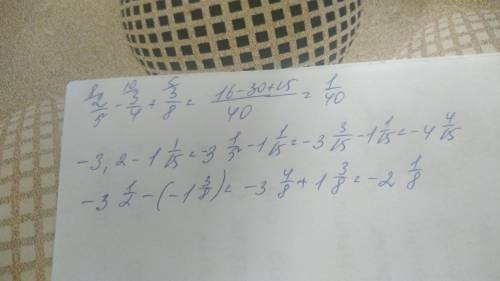 2/5 - 3/4 + 3/8 = (16-30+15)/40 = 1/40
-3,2 - 1 1/15 = -3 1/5 - 1 1/15 = -3 3/15 - 1 1/15 = -4 4/15
-3 1/2 - (-1 3/8) = -3 4/8 + 1 3/8 = -2 1/8